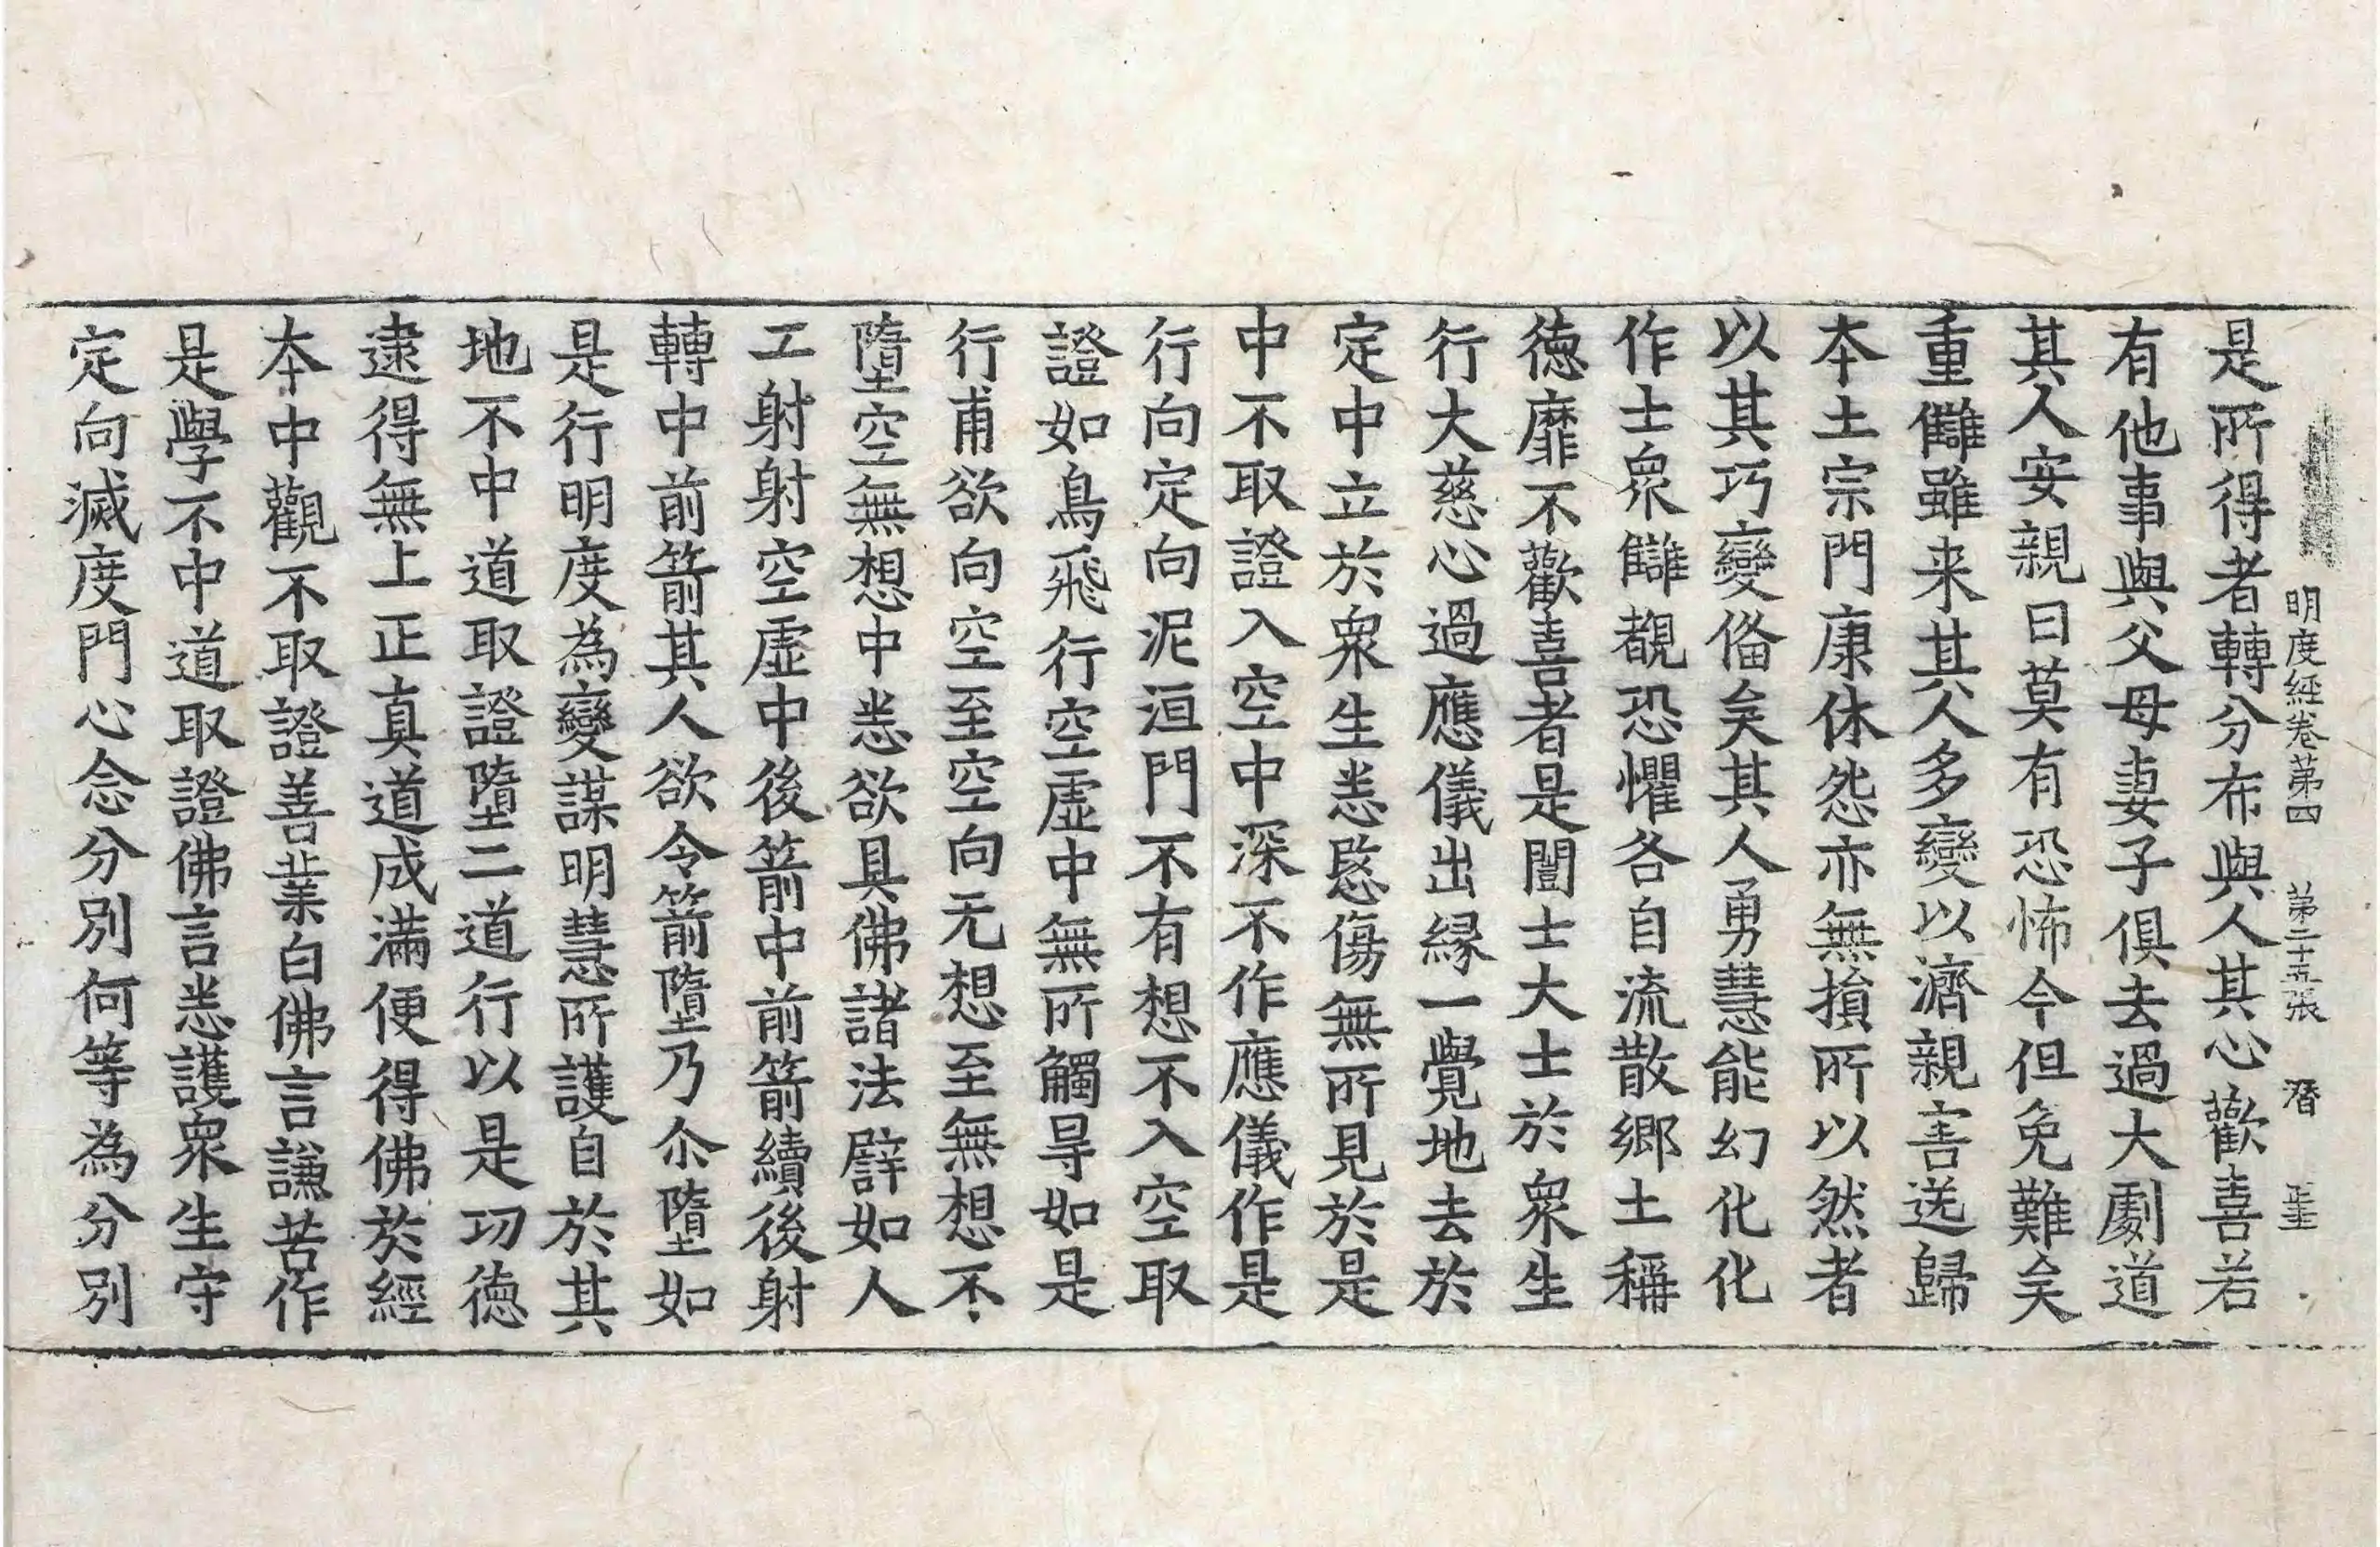 明度經卷第四 第二十五張 潛
是所得者轉分布與人其心歡喜若
有他事與父母妻子俱去過大劇道
其人安親曰莫有恐怖今但免難矣
重讎雖来其人多變以濟親害送歸
本土宗門康休怨亦無損所以然者
以其巧變俻矣其人勇慧能幻化化
作士衆讎覩恐懼各自流散鄉土稱
德靡不歡喜者是闓士大士於衆生
行大慈心過應儀出緣一覺地去於
定中立於衆生悉愍傷無所見於是
中不取證入空中深不作應儀作是
行向定向泥洹門不有想不入空取
證如鳥飛行空虛中無所觸㝵如是
行甫欲向空至空向无想至無想不
墮空無想中悉欲具佛諸法譬如人
工射射空虛中後箭中前箭續後射
轉中前箭其人欲令箭墮乃尒墮如
是行明度為變謀明慧所護自於其
地不中道取證墮二道行以是功德
逮得無上正真道成滿便得佛於經
本中觀不取證善業白佛言謙苦作
是學不中道取證佛言悉護衆生守
定向滅度門心念分別何等為分別